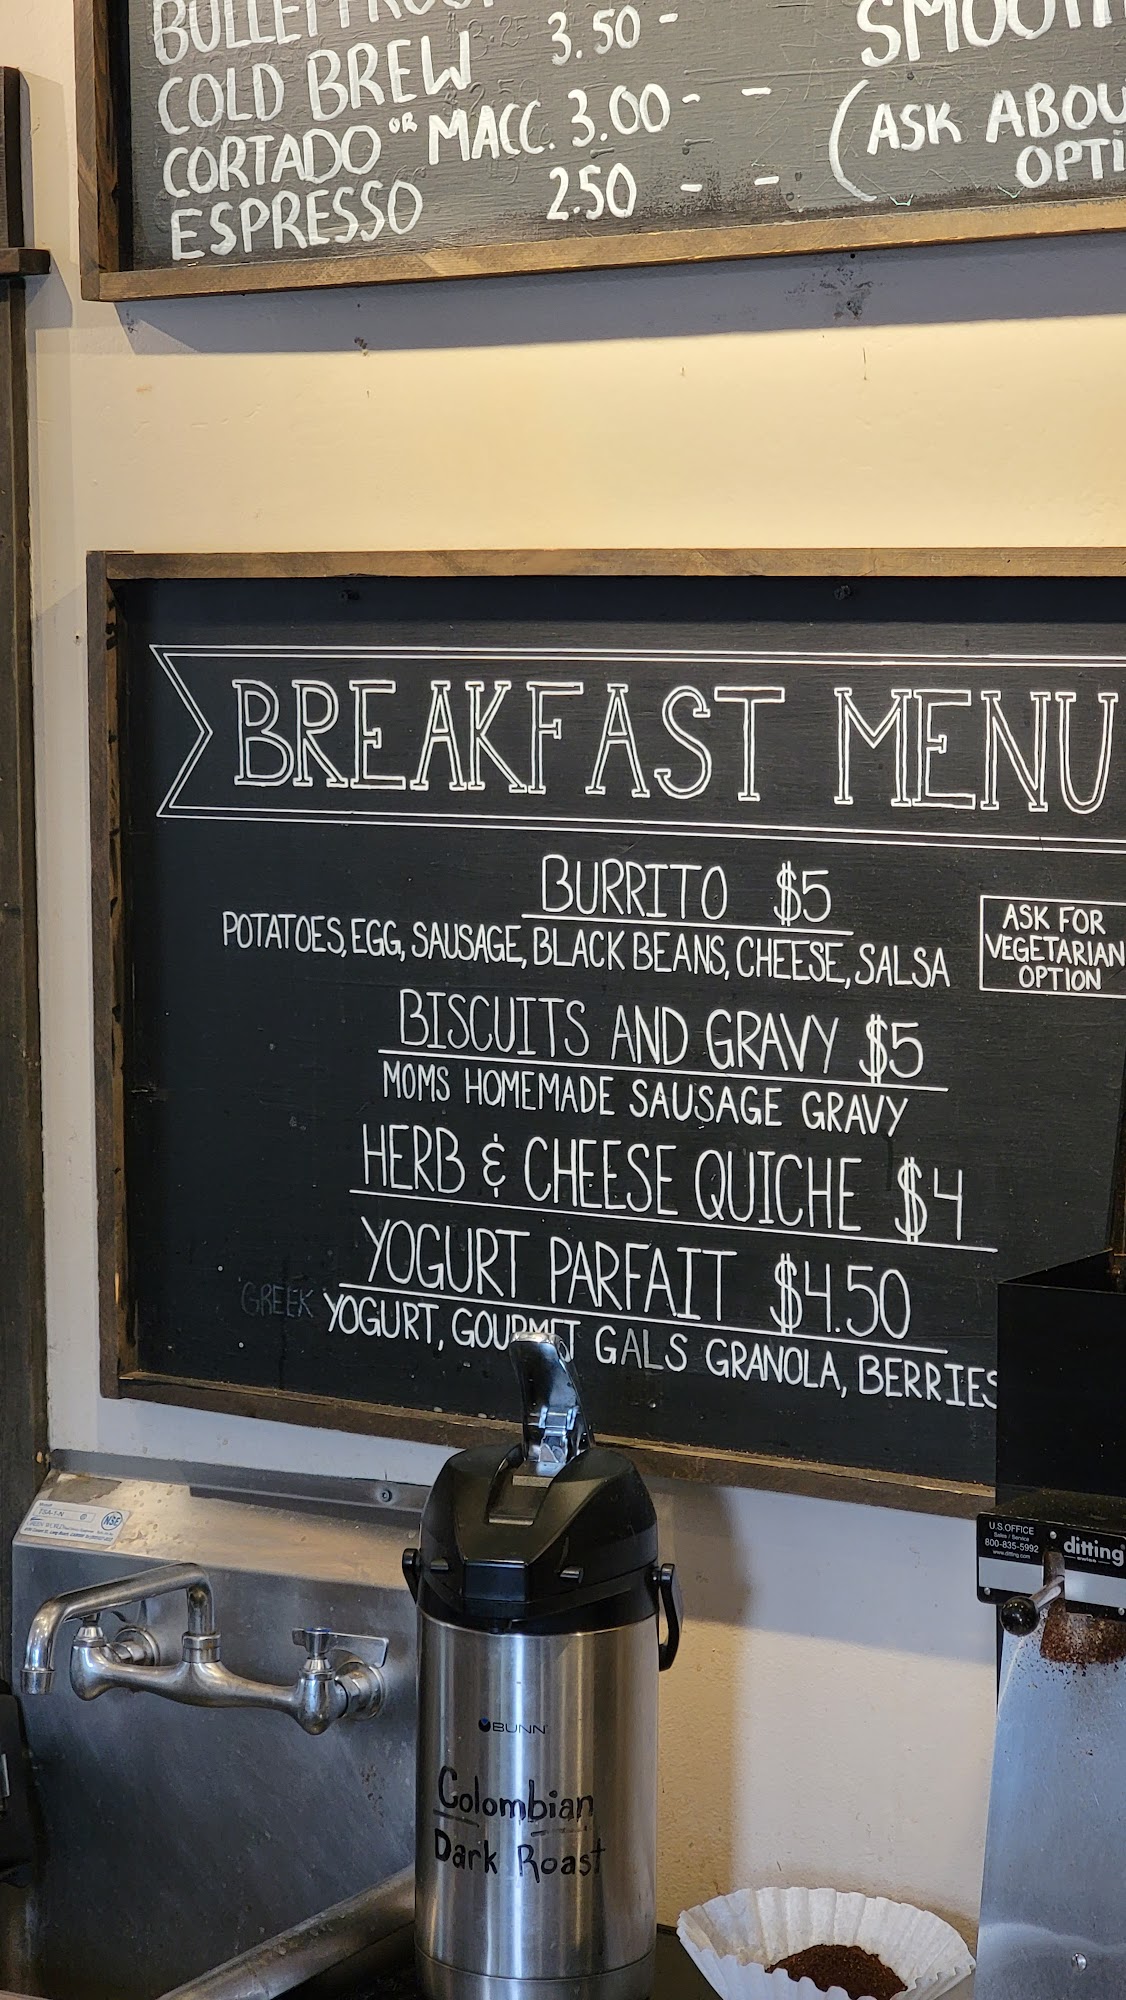 BULLETPROOF
COLD BREW 3.50 -
CORTADO OR MACC. 3.00 - -
ESPRESSO 2.50 - -
(ASK
BREAKFAST MENU
BURRITO $5
POTATOES, EGG, SAUSAGE, BLACK BEANS, CHEESE, SALSA
ASK FOR
VEGETARIAN
OPTION
BISCUITS AND GRAVY $5
MOMS HOMEMADE SAUSAGE GRAVY
HERB & CHEESE QUICHE $4
YOGURT PARFAIT $4.50
GREEK YOGURT, GOURMET GALS GRANOLA, BERRIES
NSF
U.S.OFFICE
Sales / Service
800-835-5992
www.ditting.com
ditting
swiss
BUNN
Colombian
Dark Roast